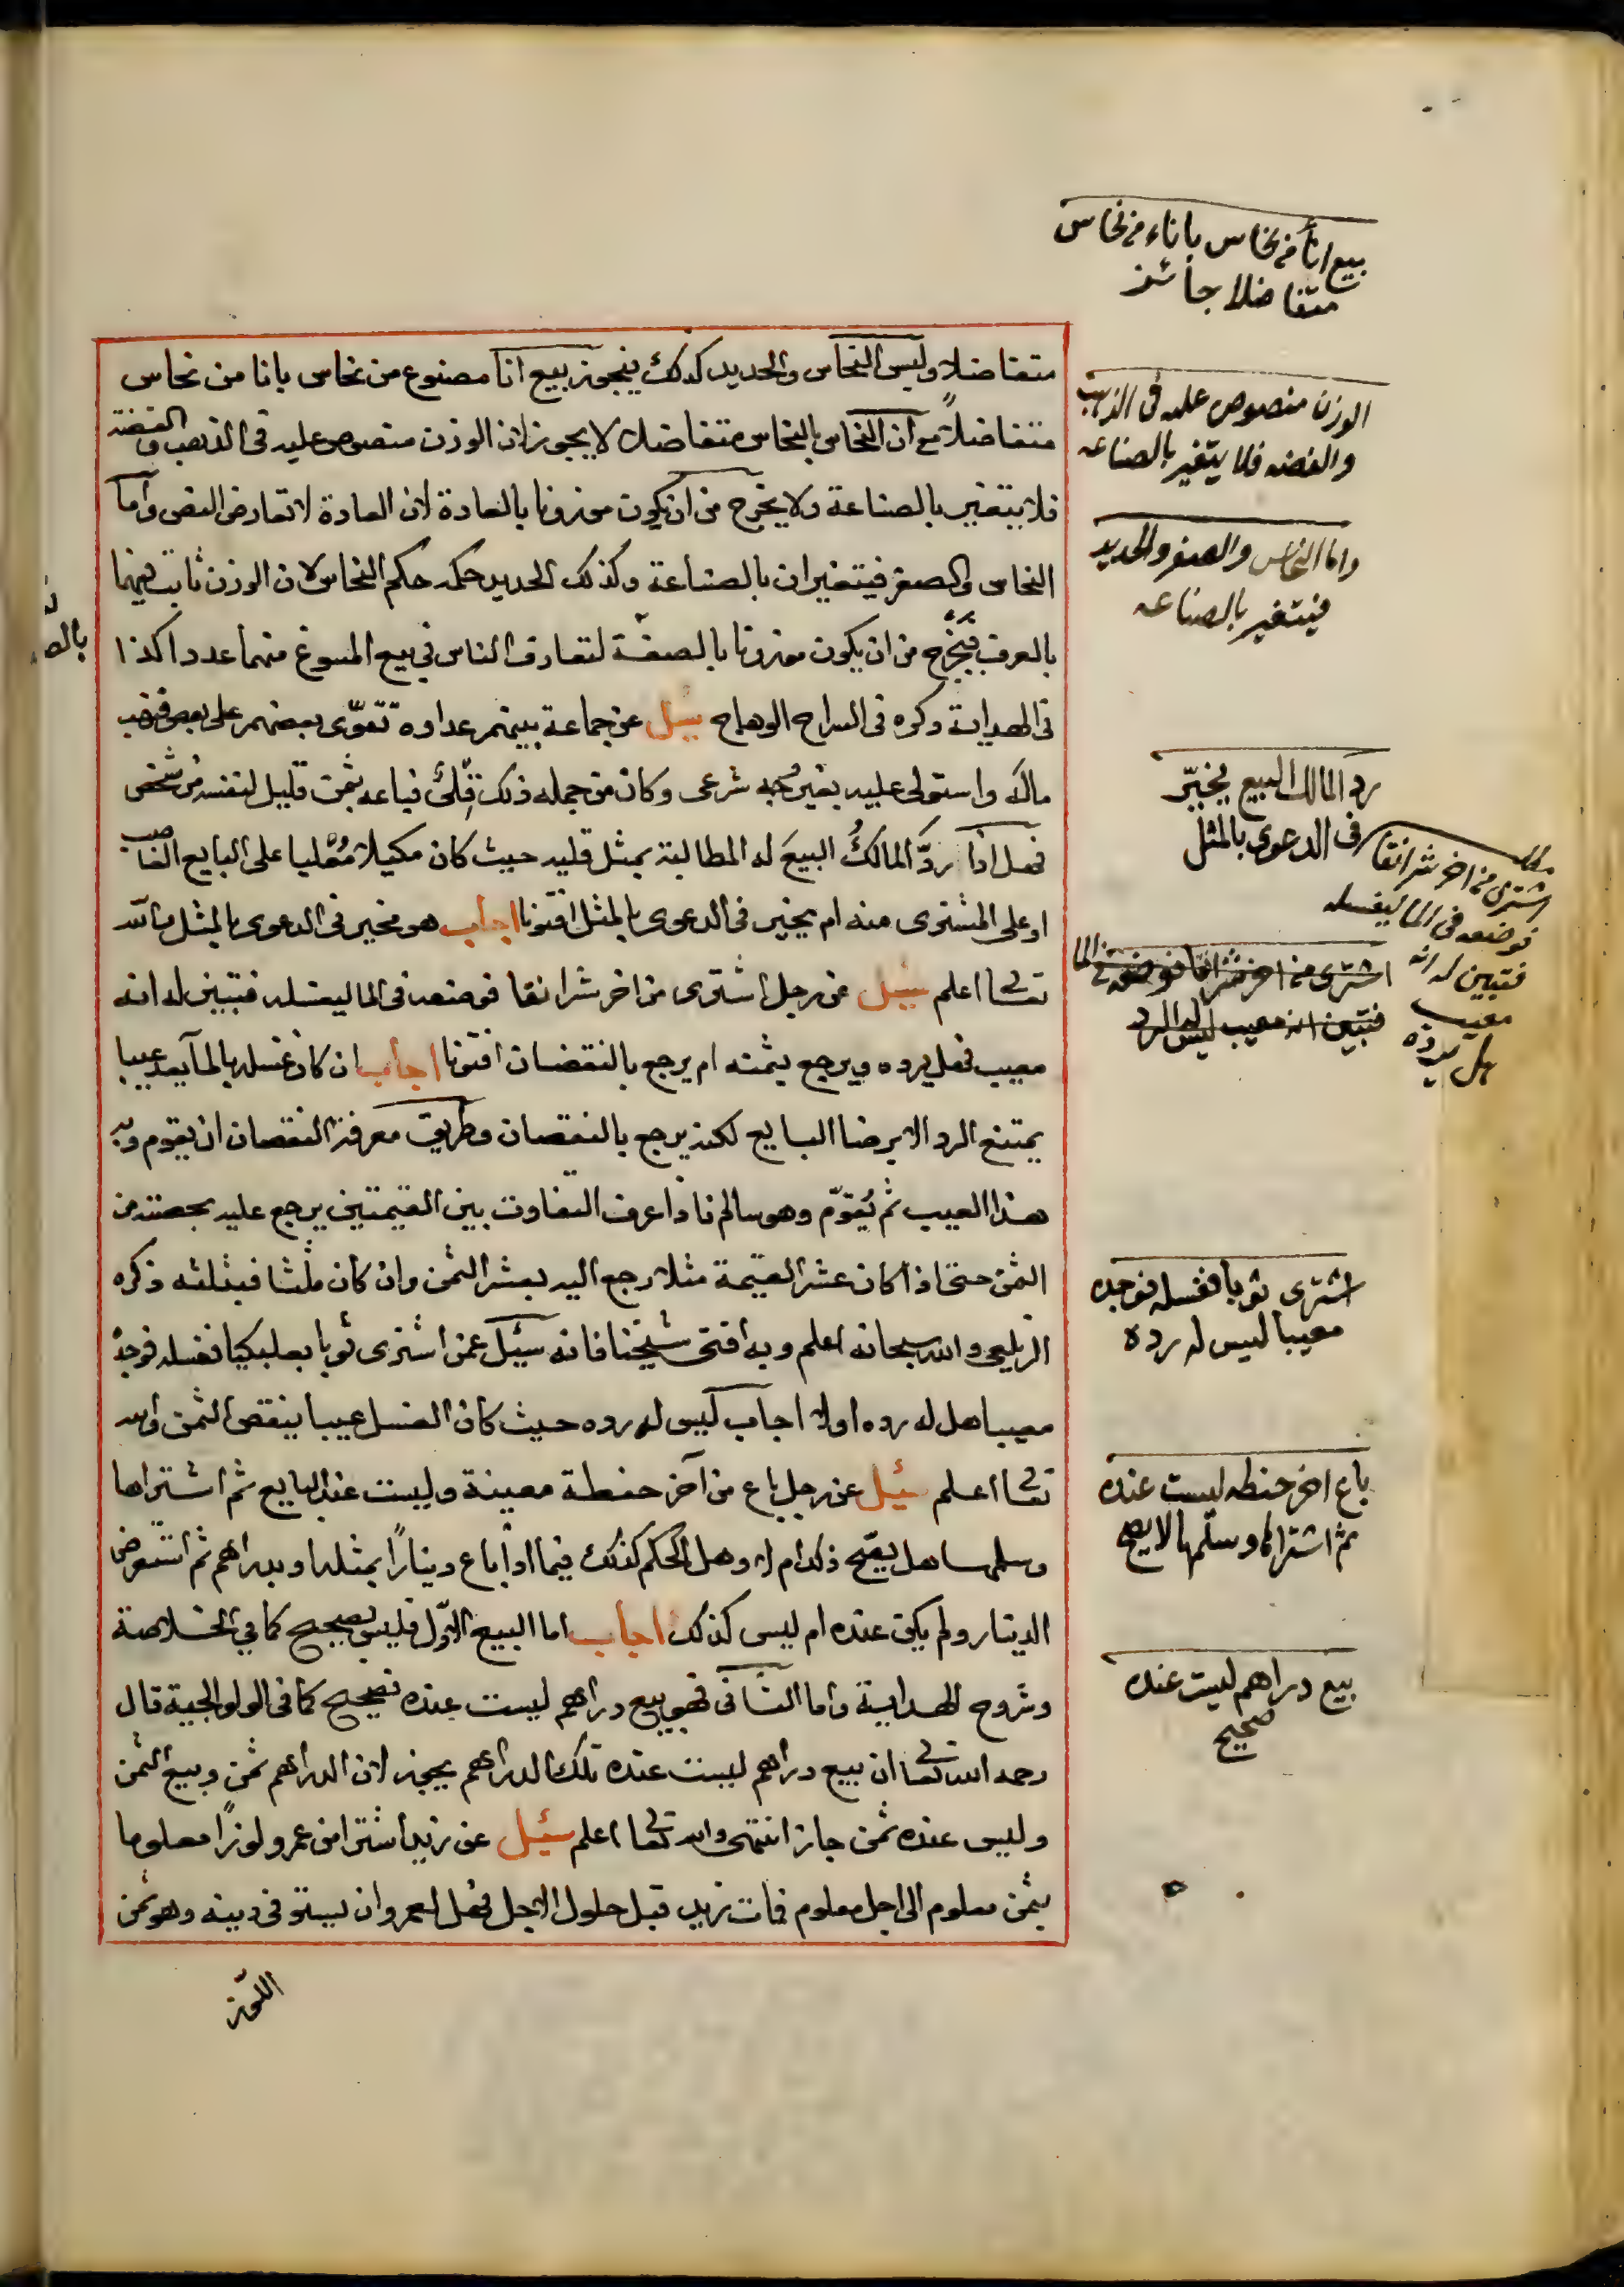 بيع انأ من نحاس باناء من نحاس
متفاضلا جائز
متفاضلا وليس النحاس والحديد كذلك فيجوز بيع انا مصنوع من نحاس بانا من نحاس
متفاضلاً مع ان النحاس بالنحاس متفاضلا لا يجوز لان الوزن منصوص عليه فى الذهب والفضة
فلا يتغير بالصناعة ولا يخرج من ان يكون موزونا بالعادة لان العادة لا تعارض النص واما
النحاس والصفر فيتغيران بالصناعة وكذلك الحديد حكمه حكم النحاس لان الوزن ثابت فيهما
بالعرف فيخرج من ان يكون موزونا بالصفة لتعارف الناس في بيع المصوغ منهما عددا كذا
فى الهداية وذكره فى السراج الوهاج سئل عن جماعة بينهم عداوة تقوّى بعضهم على بعض فنهب
ماله واستولى عليه بغير وجه شرعى وكان من جمله ذلك قلىً فباعه بثمن قليل لنفسه من شخص
فهل اذا ردّ المالكُ البيعَ له المطالبة بمثل قليه حيث كان مكيلا مثليا على البايع الغاصب
او على المشترى منه ام يخير فى الدعوى بالمثل افتونا اجاب هو مخير فى الدعوى بالمثل والله
تعالى اعلم سئل عن رجل اشترى من اخر شرانقا فوضعه فى الما ليغسله فتبين له انه
معيب فهل يرده ويرجع بثمنه ام يرجع بالنقصان افتونا اجاب ان كان غسله بالمآ يعد عيبا
يمتنع الرد الا برضا البايع لكنه يرجع بالنقصان وطريق معرفة النقصان ان يقوم وبه
هذا العيب ثم يُقوّم وهو سالم فاذا عرف التفاوت بين القيمتين يرجع عليه بحصته من
الثمن حتى اذا كان عشر القيمة مثلا رجع اليه بعشر الثمن وان كان ثلثا فبثلثه ذكره
الزيلعي والله سبحانه اعلم وبه افتى شيخنا فانه سئل عمن اشترى ثوبا بعلبكيا فغسله فوجده
معيبا هل له رده اولا اجاب ليس له رده حيث كان الغسل عيبا ينقص الثمن والله
تعالى اعلم سئل عن رجل باع من آخر حنطة معينة وليست عند البايع ثم اشتراها
وسلمها هل يصح ذلك ام لا وهل الحكم كذلك فيما اذا باع دينارًا بمثله او بدراهم ثم استقرض
الدينار ولم يكن عنده ام ليس كذلك اجاب اما البيع الاول فليس بصحيح كما في الخلاصة
وشروح الهداية واما الثانى فهو بيع دراهم ليست عنده فصحيح كما فى الولوالجية قال
رحمه الله تعالى ان بيع دراهم ليست عنده تلك الدراهم يجوز لان الدراهم ثمن وبيع الثمن
وليس عنده ثمن جاز انتهى والله تعالى اعلم سئل عن زيد اشترا من عمرو لوزاً معلوما
بثمن معلوم الى اجل معلوم فمات زيد قبل حلول الاجل فهل لعمرو ان يستوفى دينه وهو ثمن
اللوز
الوزن منصوص عليه فى الذهب
والفضه فلا يتغير بالصناعه
واما النحاس والصفر والحديد
فيتغير بالصناعه
رد المالك البيع يخيّر
فى الدعوى بالمثل
مطلب
اشترى من اخر شرانقا
فوضعه فى الما ليغسله
فتبين له انه
معيب
هل يرده
اشترى من اخر شرانقا فوضعه فى الما
فتبين انه معيب ليس له الرد
اشترى ثوبا فغسله فوجده
معيبا ليس له رده
باع اخر حنطه ليست عنده
ثم اشتراها وسلّمها لا يصح
بيع دراهم ليست عنده
صحيح